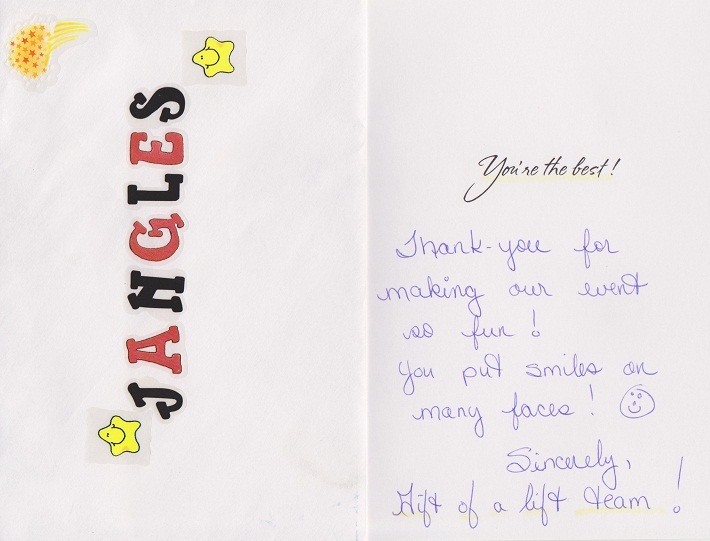 JANGLES
You're the best!
Thank-you for
making our event
so fun!
You put smiles on
many faces!
Sincerely,
Gift of a lift team!